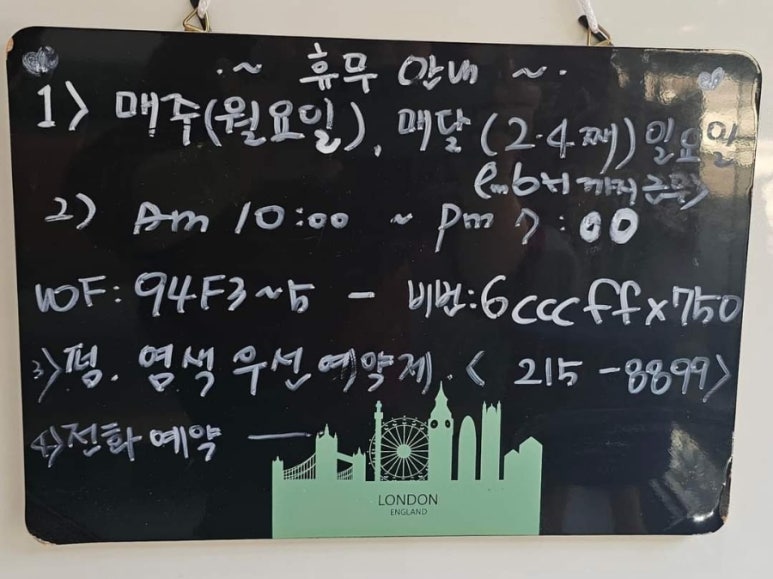 ·~ 휴무 안내 ~·
1> 매주(월요일), 매달 (2·4째) 일요일
Pm 6시 까지 근무>
2) Am 10:00 ~ Pm 7:00
WF: 94F3~5 - 비번:6cccffx750
3>펌. 염색 우선 예약제. < 215-8899>
4>전화 예약 —
LONDON
ENGLAND